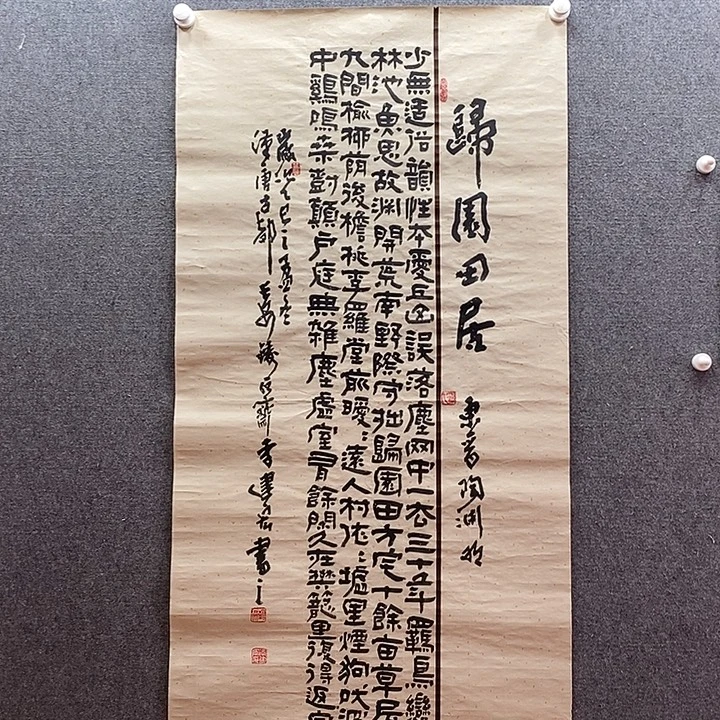 歸園田居
東晉陶淵明
少無适俗韻性本愛丘山誤落塵网中一去三十年羈鳥戀
林池魚思故淵開荒南野際守拙歸園田方宅十餘亩草屋
九間榆柳荫後檐桃李羅堂前曖〻遠人村依〻墟里煙狗吠深
中鷄鳴桑樹顛户庭無雜塵虛室有餘閑久在樊籠里復得返自
歲次乙巳之孟冬
書之